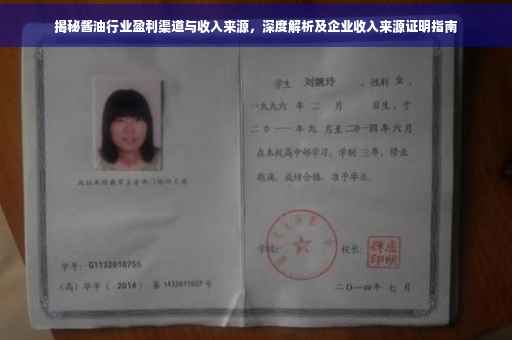 揭秘酱油行业盈利渠道与收入来源，深度解析及企业收入来源证明指南
学生 刘婉玲 ，性别 女 ，
一九九六 年 二 月 日生，于
二〇一一 年 九 月至二〇一四年 六 月
在本校高中部学习，学制 三年，修业
期满，成绩合格，准予毕业。
学校：
校长：
学号：G1132010755
（高）毕字（ 2014 ）第 1432011007 号
二〇一四年 七 月